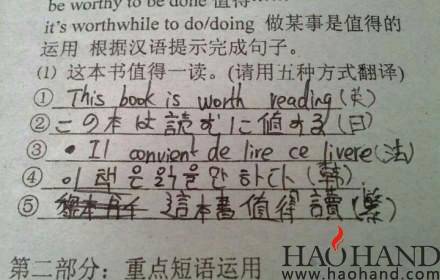 be worthy to be done 值得
it's worthwhile to do/doing 做某事是值得的
运用 根据汉语提示完成句子。
(1) 这本书值得一读。(请用五种方式翻译)
① This book is worth reading (英)
② この本は読むに値する (日)
③ • Il convient de lire ce livere (法)
④ 이 책은 읽을만 하다 (韩)
⑤ 這本書值得讀 (繁)
第二部分：重点短语运用
HAOHAND
www.haohand.com